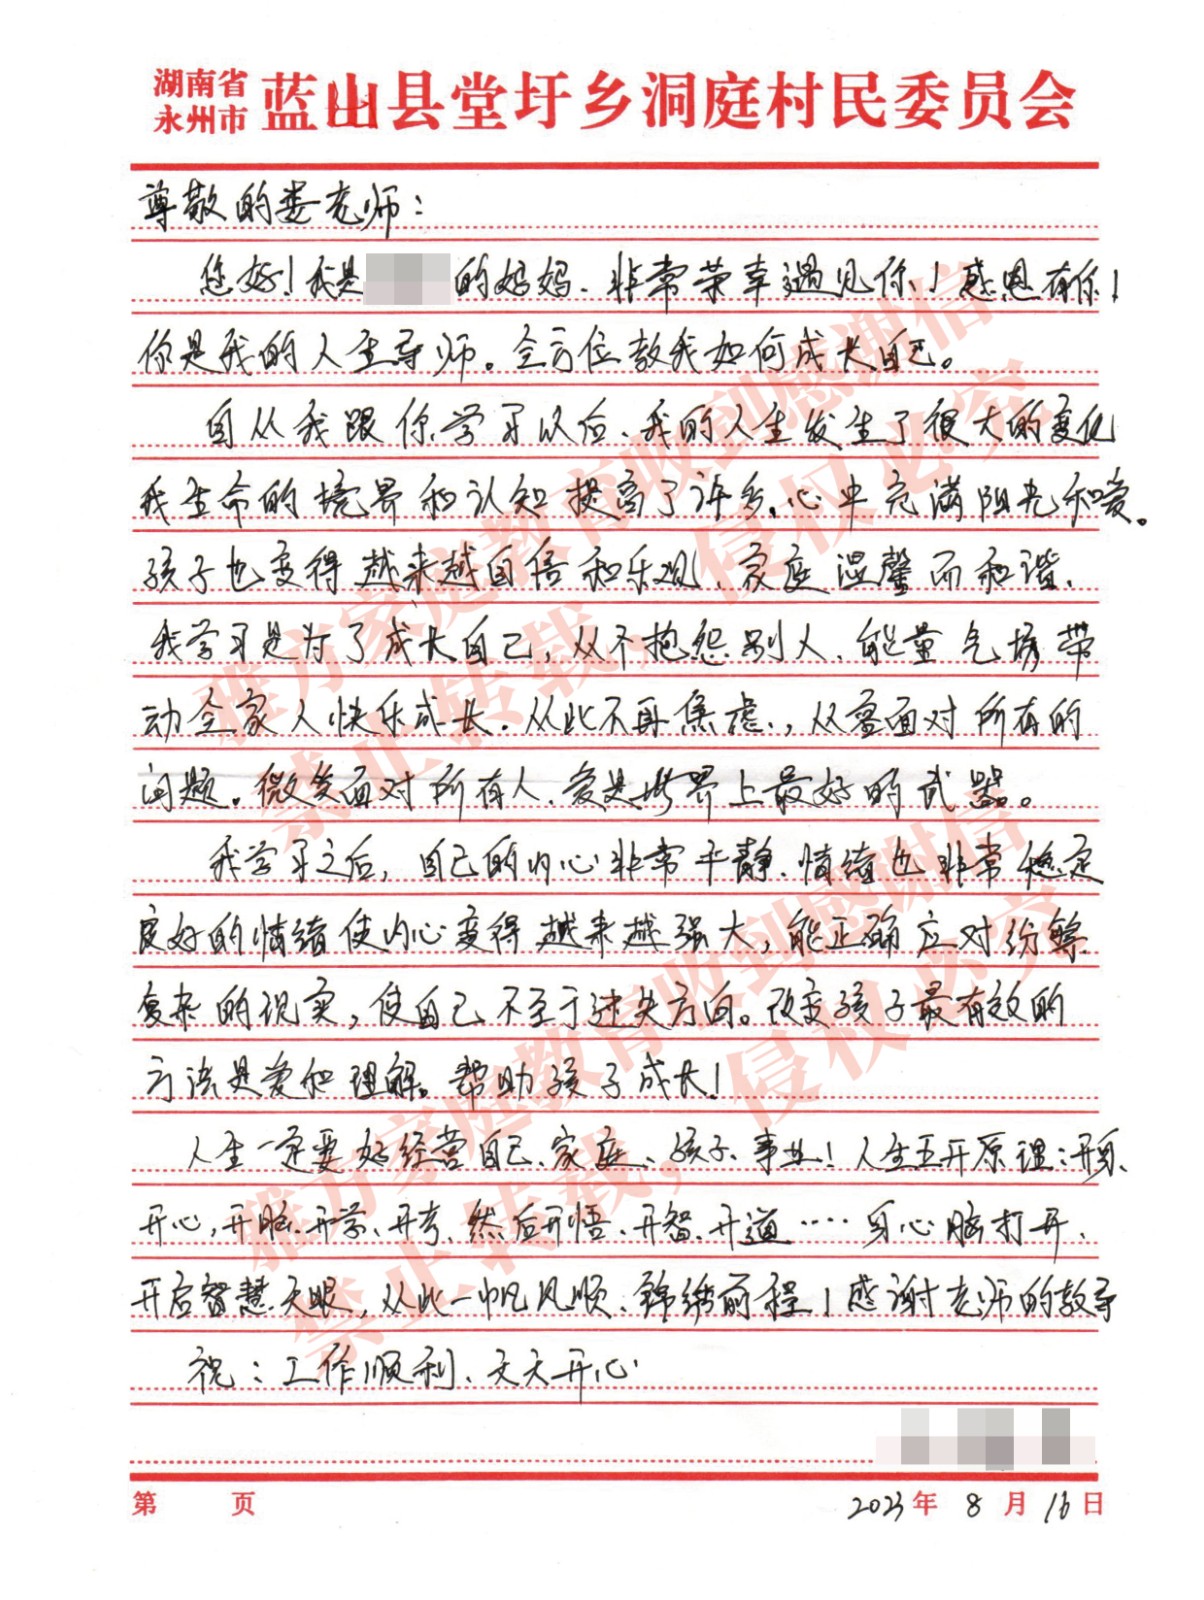 湖南省
永州市
蓝山县堂圩乡洞庭村民委员会
尊敬的娄老师：
您好！我是
的妈妈、非常荣幸遇见你！感恩有你！
你是我的人生导师。全方位教我如何成长自己。
自从我跟你学习以后、我的人生发生了很大的变化
我生命的境界和认知提高了许多。心中充满阳光和爱。
孩子也变得越来越自信和乐观、家庭温馨而和谐、
我学习是为了成长自己，从不抱怨别人、能量气场带
动全家人快乐成长。从此不再焦虑，从容面对所有的
问题。微笑面对所有人、爱是世界上最好的武器。
我学习之后，自己的内心非常平静、情绪也非常稳定
良好的情绪使内心变得越来越强大，能正确应对纷繁
复杂的现实，使自己不至于迷失方向。改变孩子最有效的
方法是爱和理解。帮助孩子成长！
人生一定要好经营自己、家庭、孩子、事业！人生五开原理：开身、
开心，开脑、开学、开考、然后开悟、开智、开道……身心脑打开、
开启智慧天眼，从此一帆风顺、锦绣前程！感谢老师的教导
祝：工作顺利、天天开心
第 页
2023年 8月16日
雅方家庭教育收到感谢信
禁止转载，侵权必究
雅方家庭教育收到感谢信
禁止转载，侵权必究